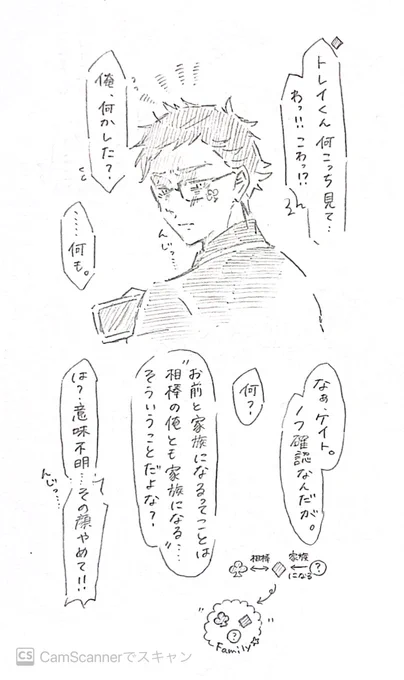 トレイくん何こっち見て…
わっ!!こわっ!?
俺、何かした?
んじっ…
……何も。
なぁ、ケイト。
1つ確認なんだが。
何?
お前と家族になるってことは
"相棒の俺とも家族になる…"
そういうことだよな?
は?意味不明…その顔やめて!!
んじっ…
相棒
家族
になる
?
?
Family
CS CamScannerでスキャン